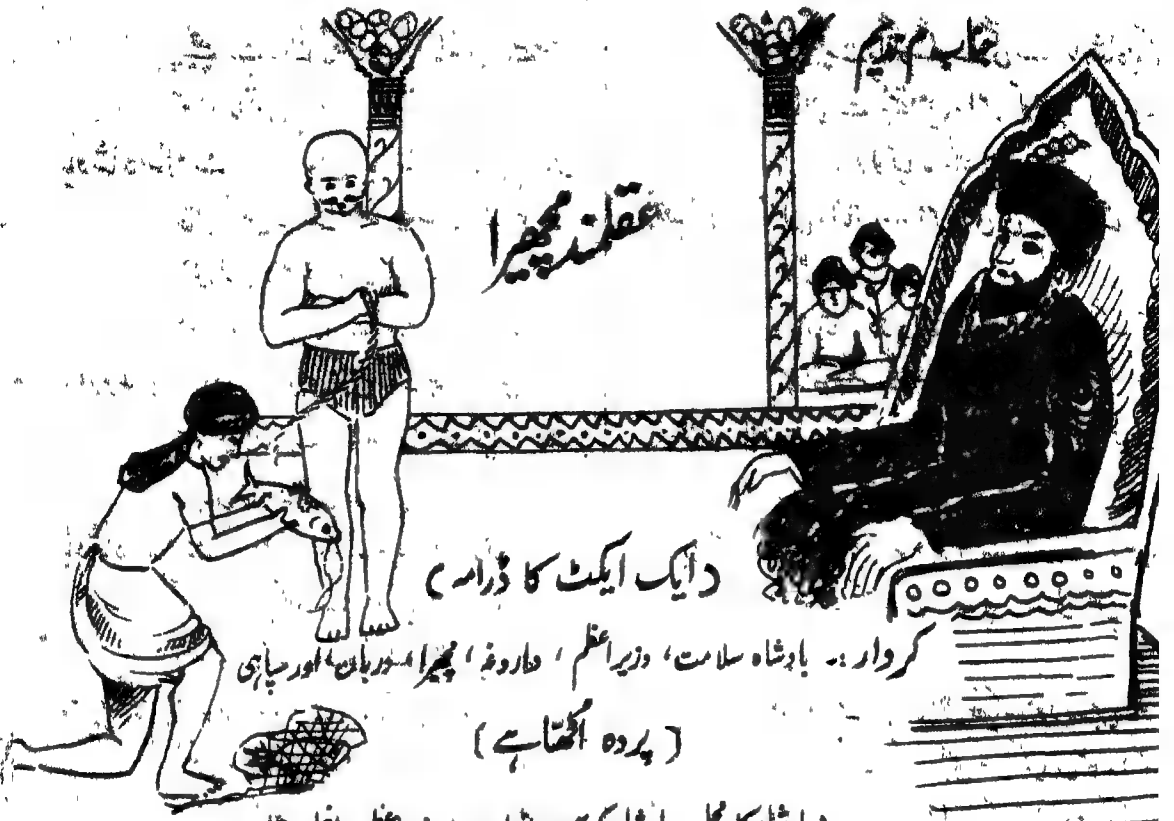 جناب م ندیم
عقلمند مچھیرا
(ایک ایکٹ کا ڈرامہ)
کردار :۔ بادشاہ سلامت، وزیر اعظم، داروغہ، مچھیرا، دربان، اور سپاہی
(پردہ اٹھتا ہے)